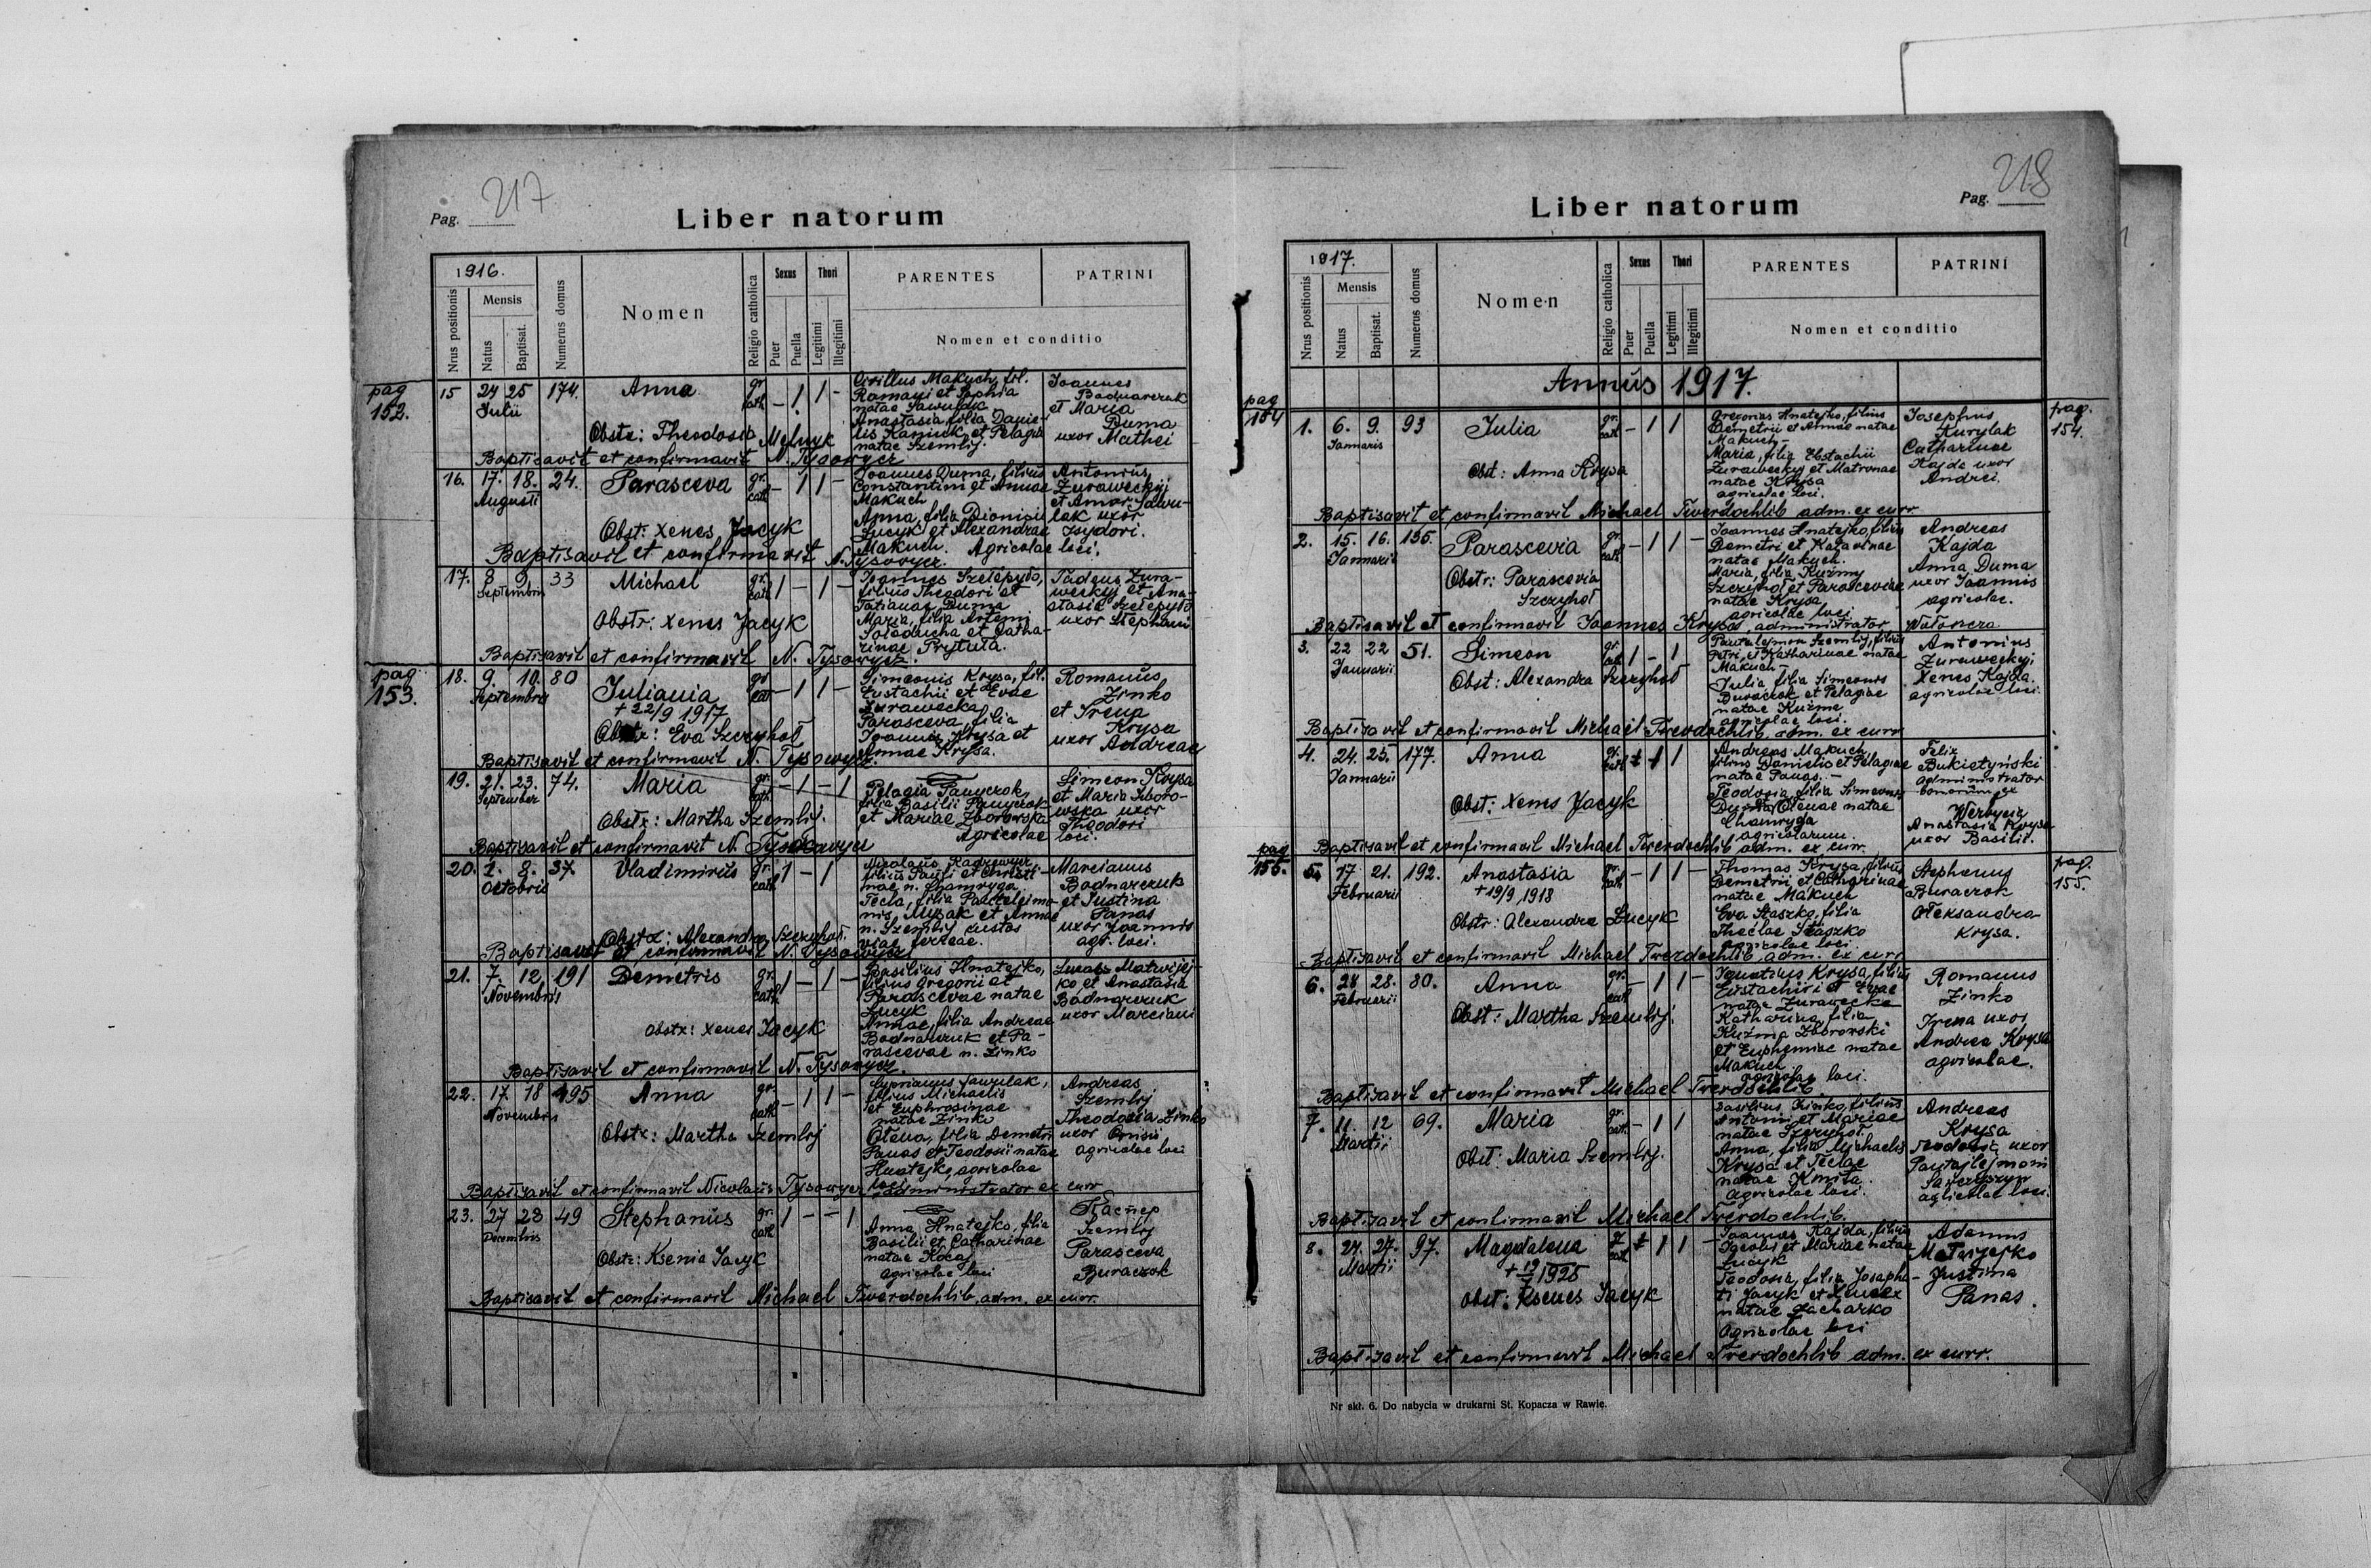 217
Pag.
Liber natorum
1916.
Nrus positionis
Mensis
Natus
Baptisat.
Numerus domus
Nomen
Religio catholica
Sexus
Puer
Puella
Thori
Legitimi
Illegitimi
PARENTES
PATRINI
Nomen et conditio
pag 152.
15 24 25 174. Anna gr. cath. - 1 1 -
Julii
Cirillus Makuch, fil.
Romani et Sophia
natae Sawulak
Anastasia, filia Danie-
lis Kaniuk et Pelagia
natae Szemlij.
Joannes
Bodnarczuk
et Maria
Duma
uxor Mathei
Obstr: Theodosia Melnyk
Baptisavit et confirmavit N. Tysowycz
16. 17. 18. 24. Parasceva gr. cath. - 1 1 -
Augusti
Joannes Duma, filius
Constantini et Annae
Makuch
Anna, filia Dionisii
Lucyk et Alexandrae
Makuch. Agricolae loci.
Antonius
Zuraweckyj
et Anna Sawu-
lak uxor
Isydori.
Obstr: Xenes Jacyk
Baptisavit et confirmavit N. Tysowycz.
17. 8 9. 33 Michael gr. cath. 1 - 1 -
Septembris
Joannes Szełepyło,
filius Theodori et
Tatianae Duma
Maria, filia Artemi
Sołoducha et Catha-
rinae Prytuła.
Tadeus Zura-
weckyj et Ana-
stasia Szełepyło
uxor Stephani
Obstr: Xenes Jacyk
Baptisavit et confirmavit N. Tysowycz.
pag 153.
18. 9. 10. 80 Juliania - 1 1 -
Septembris
+ 22/9 1917
Simeonis Krysa, fil.
Eustachii et Evae
Zurawecka
Parasceva, filia
Joannis Krysa et
Annae Krysa.
Romanus
Zinko
et Irena
Krysa
uxor Andreae
Obstr: Eva Szczyhoł
Baptisavit et confirmavit N. Tysowycz.
19. 21. 23. 74. Maria gr. cath. - 1 - 1
September
Pelagia Panyczok,
filia Basilii Panyczok
et Mariae Zborowska
Agricolae loci.
Simeon Krysa
et Maria Zboro-
wska uxor
Theodori
Obstr: Martha Szemlij.
Baptisavit et confirmavit N. Tysowycz
20. 1. 8. 37. Vladimirus gr. cath. 1 - 1
Octobris
filius Pauli et Christi-
nae n. Chamryga
Tecla, filia Panteleimo-
nis, Muzak et Annae
n. Szemlij custos
viae ferreae.
Marcianus
Bodnarczuk
et Justina
Panas
uxor Joannis
agr. loci.
Obstr: Alexandra Szczyhoł.
Baptisavit et confirmavit N. Tysowycz
21. 7. 12. 191 Demetris gr. cath. 1 - 1 -
Novembris
Basilius Hnatejko,
filius Gregorii et
Parascevae natae
Lucyk
Annae, filia Andreae
Bodnarczuk et Pa-
rascevae n. Zinko
Lucas Matwijej-
ko et Anastasia
Bodnarczuk
uxor Marciani
Obstr: Xenes Jacyk
Baptisavit et confirmavit N. Tysowycz.
22. 17. 18 195 Anna gr. cath. - 1 1 -
Novembris
Cyprianus Sawulak,
filius Michaelis
et Euphrosinae
natae Zinko
Ołena, filia Demetri
Panas et Teodosii natae
Hnatejko, agricolae
loci
Andreas
Szemlij
Theodosia Zinko
uxor Onisii
agricolae loci
Obstr: Martha Szemlij
Baptisavit et confirmavit Nicolaus Tysowycz administrator ex curr
23. 27 28 49 Stephanus gr. cath. 1 - - 1.
Decembris
Anna Hnatejko, filia
Basilii et Catharinae
natae Kocaj
agricolae loci
Каспер
Szemlij
Parasceva
Buraczok
Obstr: Ksenia Jacyk
Baptisavit et confirmavit Michael Twerdochlib, adm. ex curr.
218
Pag.
Liber natorum
1917.
Nrus positionis
Mensis
Natus
Baptisat.
Numerus domus
Nomen
Religio catholica
Sexus
Puer
Puella
Thori
Legitimi
Illegitimi
PARENTES
PATRINI
Nomen et conditio
Annus 1917.
pag 154
pag. 154.
1. 6. 9. 93 Julia gr. cath. - 1 1
Januaris
Gregorius Hnatejko, filius
Demetrii et Annae natae
Makuch -
Maria, filia Eustachii
Zuraweckyj et Matronae
natae Krysa
agricolae loci.
Josephus
Kurylak
Catharinae
Kajda uxor
Andrei.
Obst: Anna Krysa
Baptisavit et confirmavit Michael Twerdochlib adm. ex curr
2. 15. 16. 135. Parascevia gr. cath. - 1 1 -
Januarii
Joannes Hnatejko, filius
Demetri et Katarinae
natae Makuch.
Maria, filia Kuźmy
Szczyhoł et Parascevae
natae Krysa
agricolae loci
Andreas
Kajda
Anna Duma
uxor Joannis
agricolae.
Obstr: Parascevia
Szczyhoł
Baptisavit et confirmavit Joannes Krysa administrator
3. 22 22 51. Simeon gr. cath. 1 - 1
Januarii
Pantalejmon Szemlij, filius
Petri, et Katharinae natae
Makuch
Julia filia Simeonis
Buraczok et Pelagiae
natae Kuźma
agricolae loci.
Antonius
Zuraweckyj
Xenes Kajda.
agricolae loci
Obst: Alexandra Szczyhoł
Baptisavit et confirmavit Michael Twerdochlib, adm. ex curr
4. 24. 25. 177. Anna gr. cath. 1 1
Januarii
Andreas Makuch,
filius Danielis et Pelagiae
natae Panas. -
Teodosia, filia Simeonis
Duma Olenae natae
Chamryga
agricolarum.
Felix
Bukietyński
administrator
bonorum ex
Werbycia
Anastasia Krysa
uxor Basilii.
Obst: Xenes Jacyk
Baptisavit et confirmavit Michael Twerdochlib adm. ex curr.
pag 155.
pag. 155.
5. 17 21. 192. Anastasia gr. cath. - 1 1 -
Februarii
+ 19/9 1918
Thomas Krysa, filius
Demetrii et Catharinae
natae Makuch
Eva Staszko, filia
Theclae Staszko
agricolae loci
Stephanus
Buraczok
Ołeksandra
Krysa.
Obstr: Alexandra Lucyk
Baptisavit et confirmavit Michael Twerdochlib, adm. ex curr
6. 28 28. 80. Anna gr. cath - 1 1 -
Februarii
Ignatius Krysa, filius
Eustachiri et Evae
natae Zurawecka
Katharina, filia
Kuźma Zborowski
et Euphemiae natae
Makuch
agricolae loci.
Romanus
Zinko
Irena uxor
Andrea Krysa
agricolae.
Obst: Martha Szemlij.
Baptisavit et confirmavit Michael Twerdochlib
7. 11. 12 69. Maria gr. cath. - 1 1
Martii
Basilius Zinko, filius
Antonii et Mariae
natae Szczyhoł.
Anna, filia Michaelis
Krysa et Teclae
natae Kmita.
agricolae loci.
Andreas
Krysa
Teodosia uxor
Pantajlejmoni
agricolae loci.
Obst: Maria Szemlij.
Baptisavit et confirmavit Michael Twerdochlib.
8. 24. 27. 97. Magdalena cath 1 1
Martii
+ 19/7 1925
Joannes Kajda, filius
Jacobi et Mariae natae
Lucyk
Teodosia, filia Josapha-
ti Jacyk et
natae Zacharko
agricolae loci
Adamus
Matwyejko
Justina
Panas.
Obst: Ksenes Jacyk
Baptisavit et confirmavit Michael Twerdochlib adm. ex curr.
Nr skł. 6. Do nabycia w drukarni St. Kopacza w Rawie.